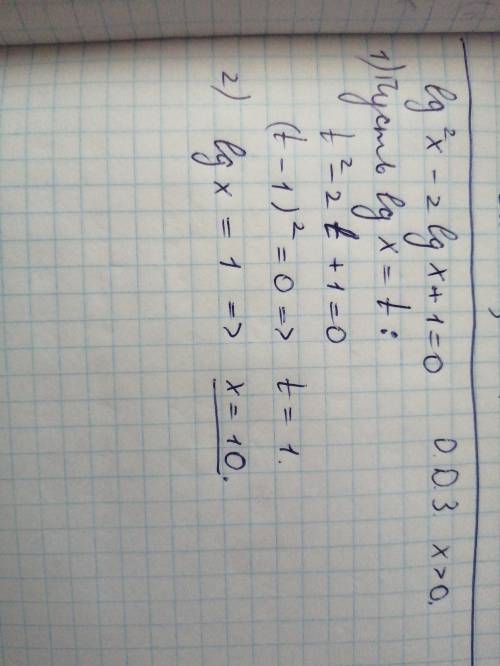 lg²x - 2lgx + 1 = 0 О.Д.З. x > 0.
1) Пусть lg x = t:
t² - 2t + 1 = 0
(t - 1)² = 0 => t = 1.
2) lg x = 1 => x = 10.